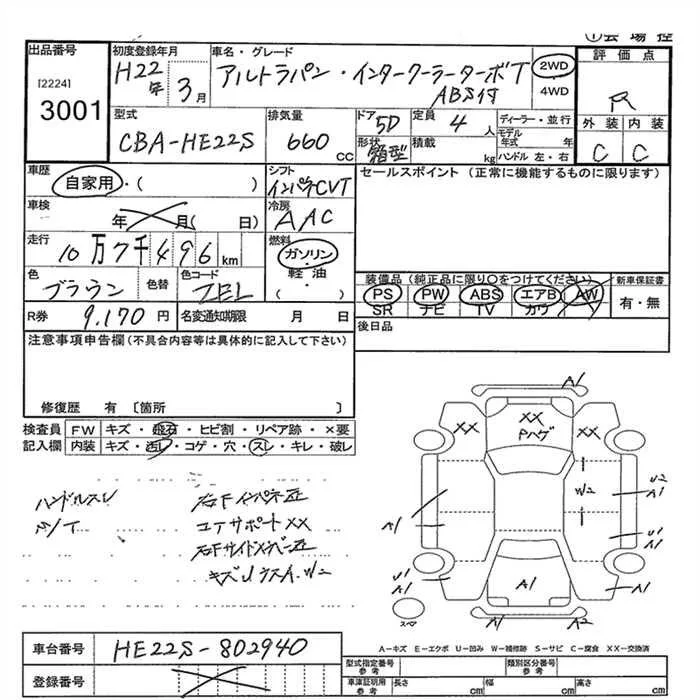 ①会場控
出品番号
[2224]
3001
初度登録年月
H22年 3月
車名・グレード
アルトラパン・インタークーラーターボT
ABS付
2WD
4WD
評価点
R
外装 内装
C C
型式
CBA-HE22S
排気量
660 CC
ドア 5D
形状 箱型
定員 4 人
積載 kg
ディーラー・並行
モデル年式 年
ハンドル 左・右
車歴
自家用・( )
シフト
インパネCVT
セールスポイント (正常に機能するものに限ります)
車検
年 月( 日)
冷房
AAC
走行
10万7千496 km
燃料
ガソリン
軽油
( )
色
ブラウン
色替
色コード
ZEL
装備品 (純正品に限り○をつけてください)
PS PW ABS エアB AW
SR ナビ TV カワ
新車保証書
有・無
R券 9,170 円
名変通知期限 月 日
後日品
注意事項申告欄 (不具合内容等は具体的に記入して下さい)
修復歴 有 〔箇所 〕
検査員 FW キズ・飛石・ヒビ割・リペア跡・×要
記入欄 内装 キズ・汚レ・コゲ・穴・スレ・キレ・破レ
ハンドルスレ
右Fインパネ歪
コアサポートXX
右Fサイドメンバー歪
A1
XX
XX
Pハゲ
XX
A1
W2
U2
A1
U1
A1
U1
A1
A1
U1
A1
A1
A2
スペア
A-キズ E-エクボ U-凹み W-補修跡 S-サビ C-腐食 XX-交換済
車台番号 HE22S-802940
登録番号
型式指定番号 参考
類別区分番号 参考
車庫証明用 参考 長さ cm 幅 cm 高さ cm